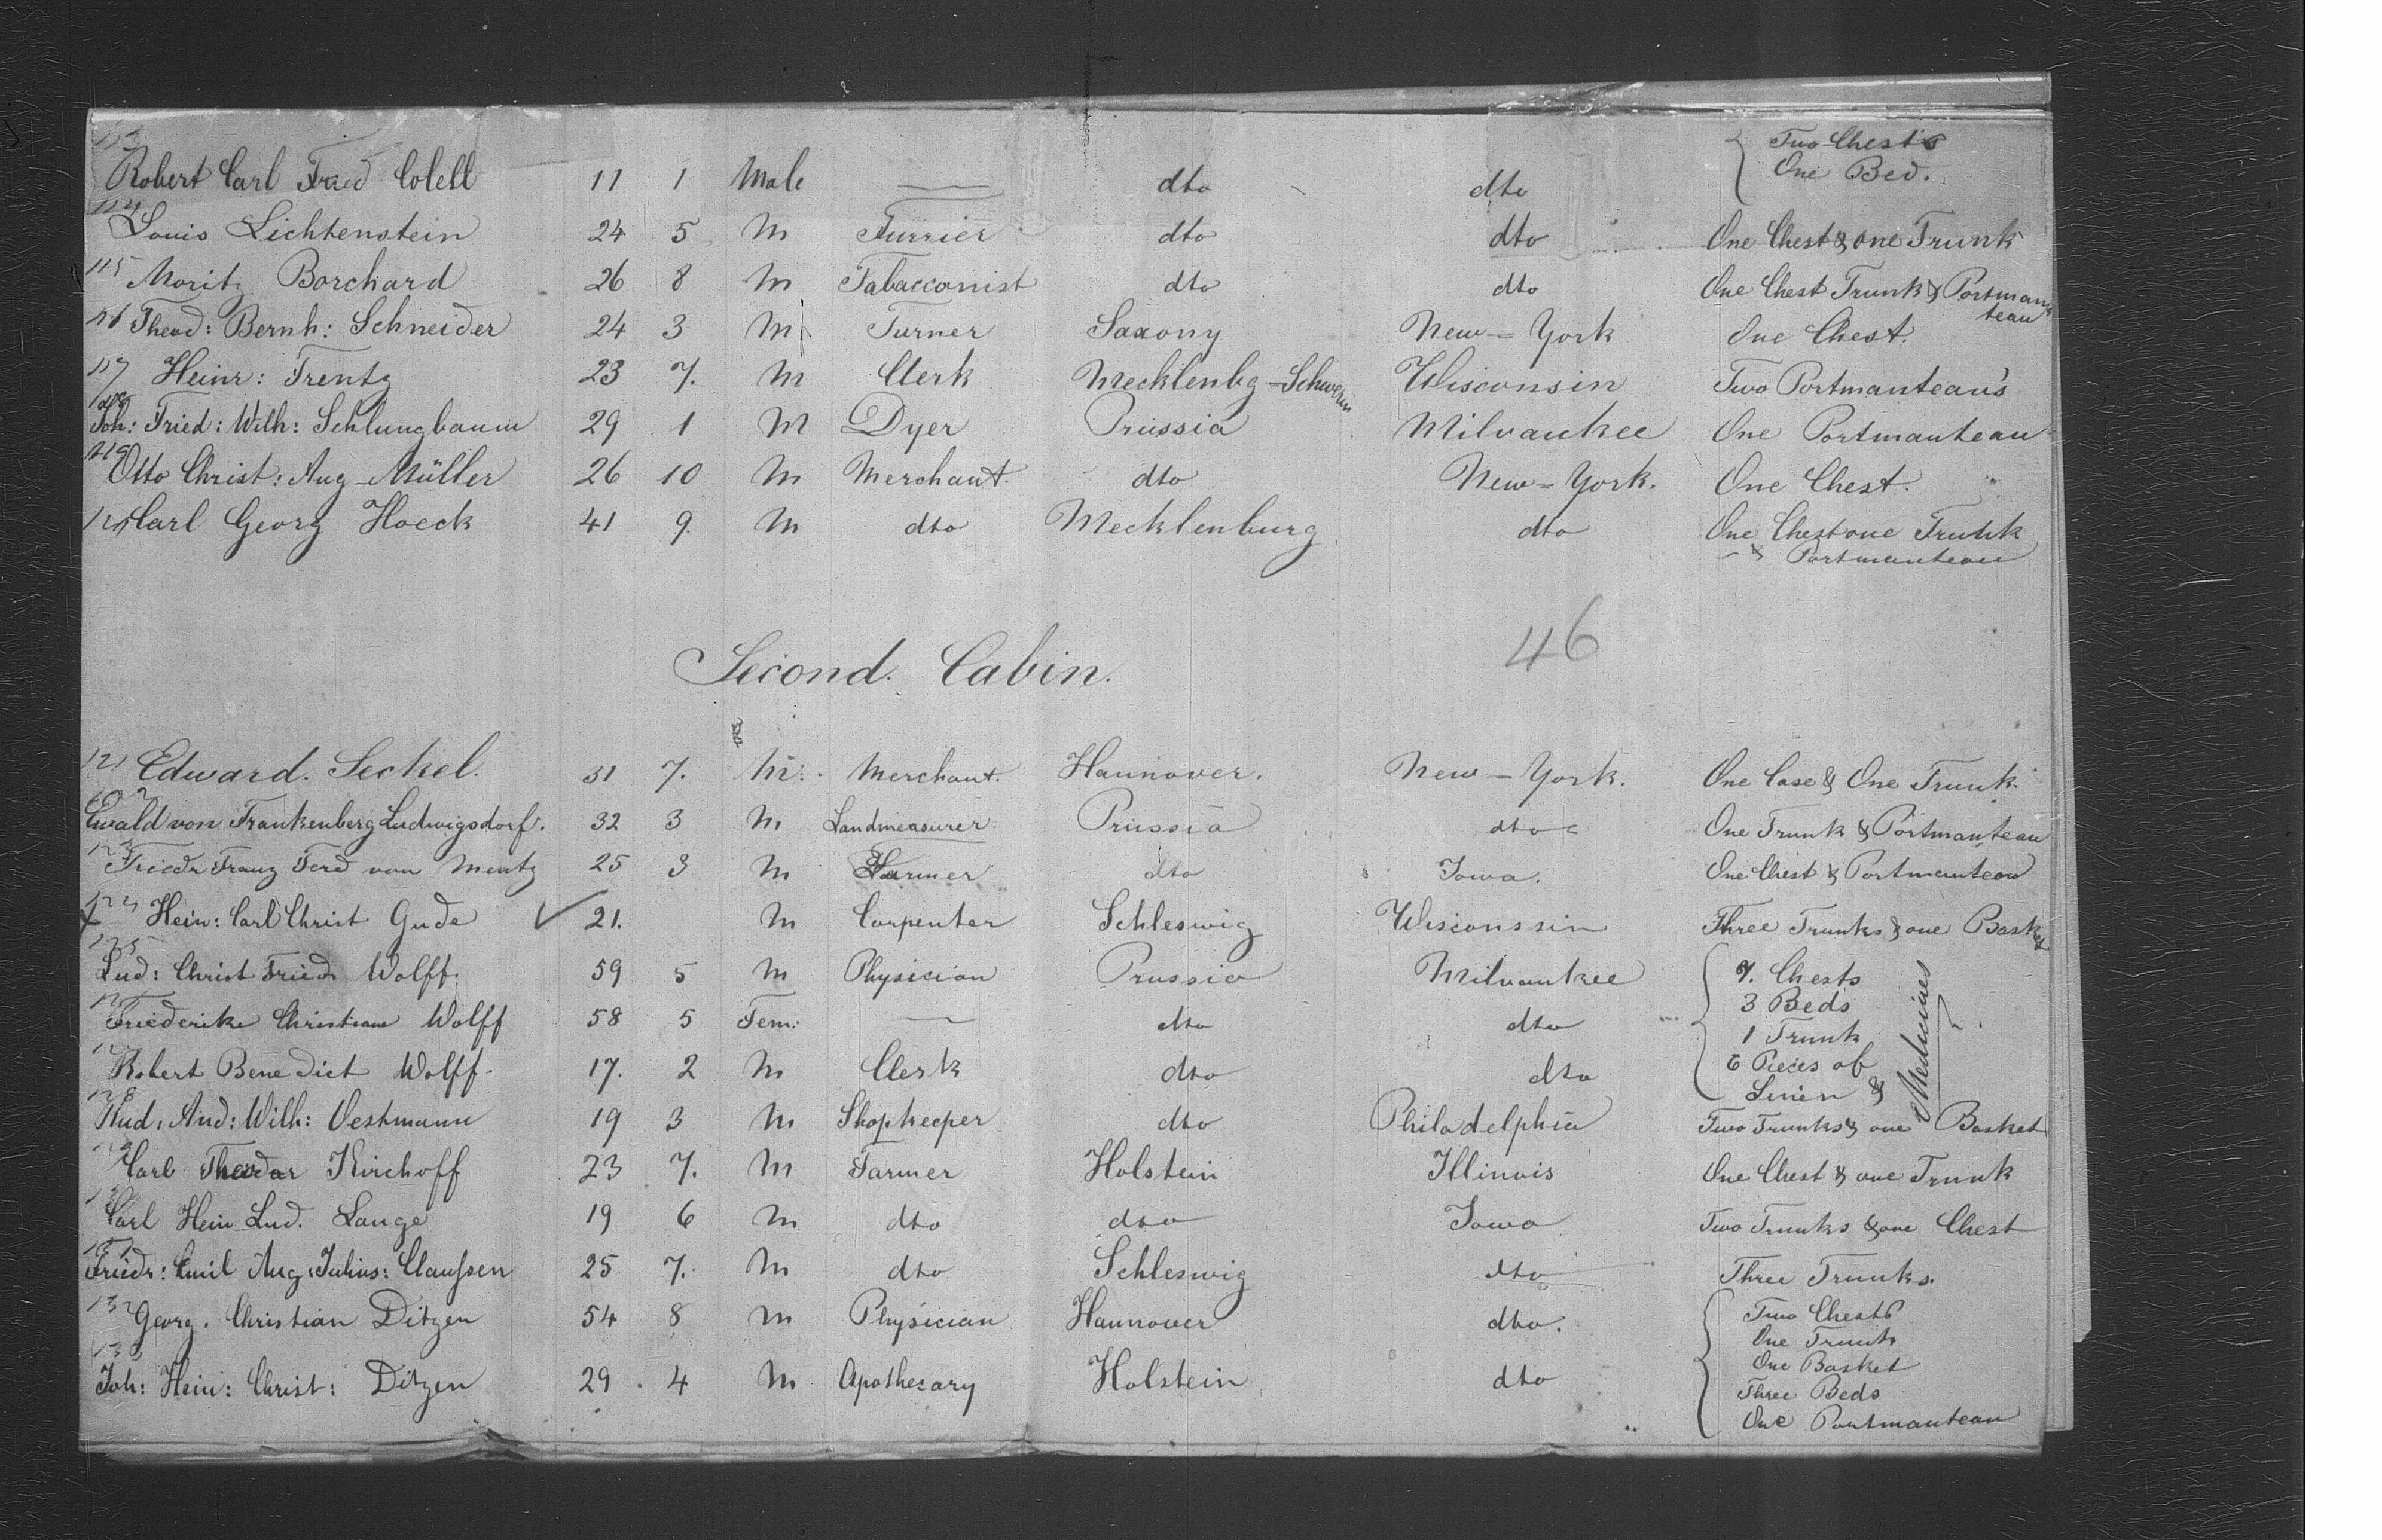 Two Chests
113 Robert Carl Fried Colell 11 1 Male — dto dto One Bed.
114 Louis Lichtenstein 24 5 M Furrier dto dto One Chest & one Trunk
115 Moritz Borchard 26 8 M Tabacconist dto dto One Chest Trunk & Portman
teau
116 Theod: Bernh: Schneider 24 3 M Turner Saxony New-York One Chest.
117 Heinr: Frentz 23 7. M Clerk Mecklenbg-Schwerin Wisconsin Two Portmanteau's
118 Joh: Fried: Wilh: Schlungbaum 29 1 M Dyer Prussia Milvaukee One Portmanteau
119 Otto Christ: Aug Müller 26 10 M Merchant. dto New-York. One Chest.
120 Carl Georg Hoeck 41 9. M dto Mecklenburg dto One Chest one Trunk
& Portmanteau
46
Second. Cabin.
121 Edward. Seckel. 31 7. M. Merchant. Hannover. New-York. One Case & One Trunk.
122 Ewald von Frankenberg Ludwigsdorf. 32 3 M Landmeasurer Prussia dto One Trunk & Portmanteau
123 Friedr Franz Ferd von Mentz 25 3 M Farmer dto Iowa. One Chest & Portmanteau
124 Hein: Carl Christ Gude ✓ 21. M Carpenter Schleswig Wisconssin Three Trunks & one Basket
125 Lud: Christ Friedr Wolff. 59 5 M Physician Prussia Milvaukee 7. Chests
3 Beds
126 Friederike Christiane Wolff 58 5 Fem: — dto dto 1 Trunk
127 Robert Benedict Wolff. 17. 2 M Clerk dto dto 6 Pieces of
Linen & Medicines
128 Rud: And: Wilh: Oestmann 19 3 M Shopkeeper dto Philadelphia Two Trunks & one Basket
129 Carl Theodor Kirchoff 23 7. M Farmer Holstein Illinois One Chest & one Trunk
130 Carl Hein Lud. Lange 19 6 M dto dto Iowa Two Trunks & one Chest
131 Friedr: Emil Aug: Julius: Claußen 25 7. M dto Schleswig dto Three Trunks.
132 Georg. Christian Ditzen 54 8 M Physician Hannover dto. Two Chests
One Trunk
One Basket
133 Joh: Hein: Christ: Ditzen 29 4 M Apothecary Holstein dto Three Beds
One Portmanteau